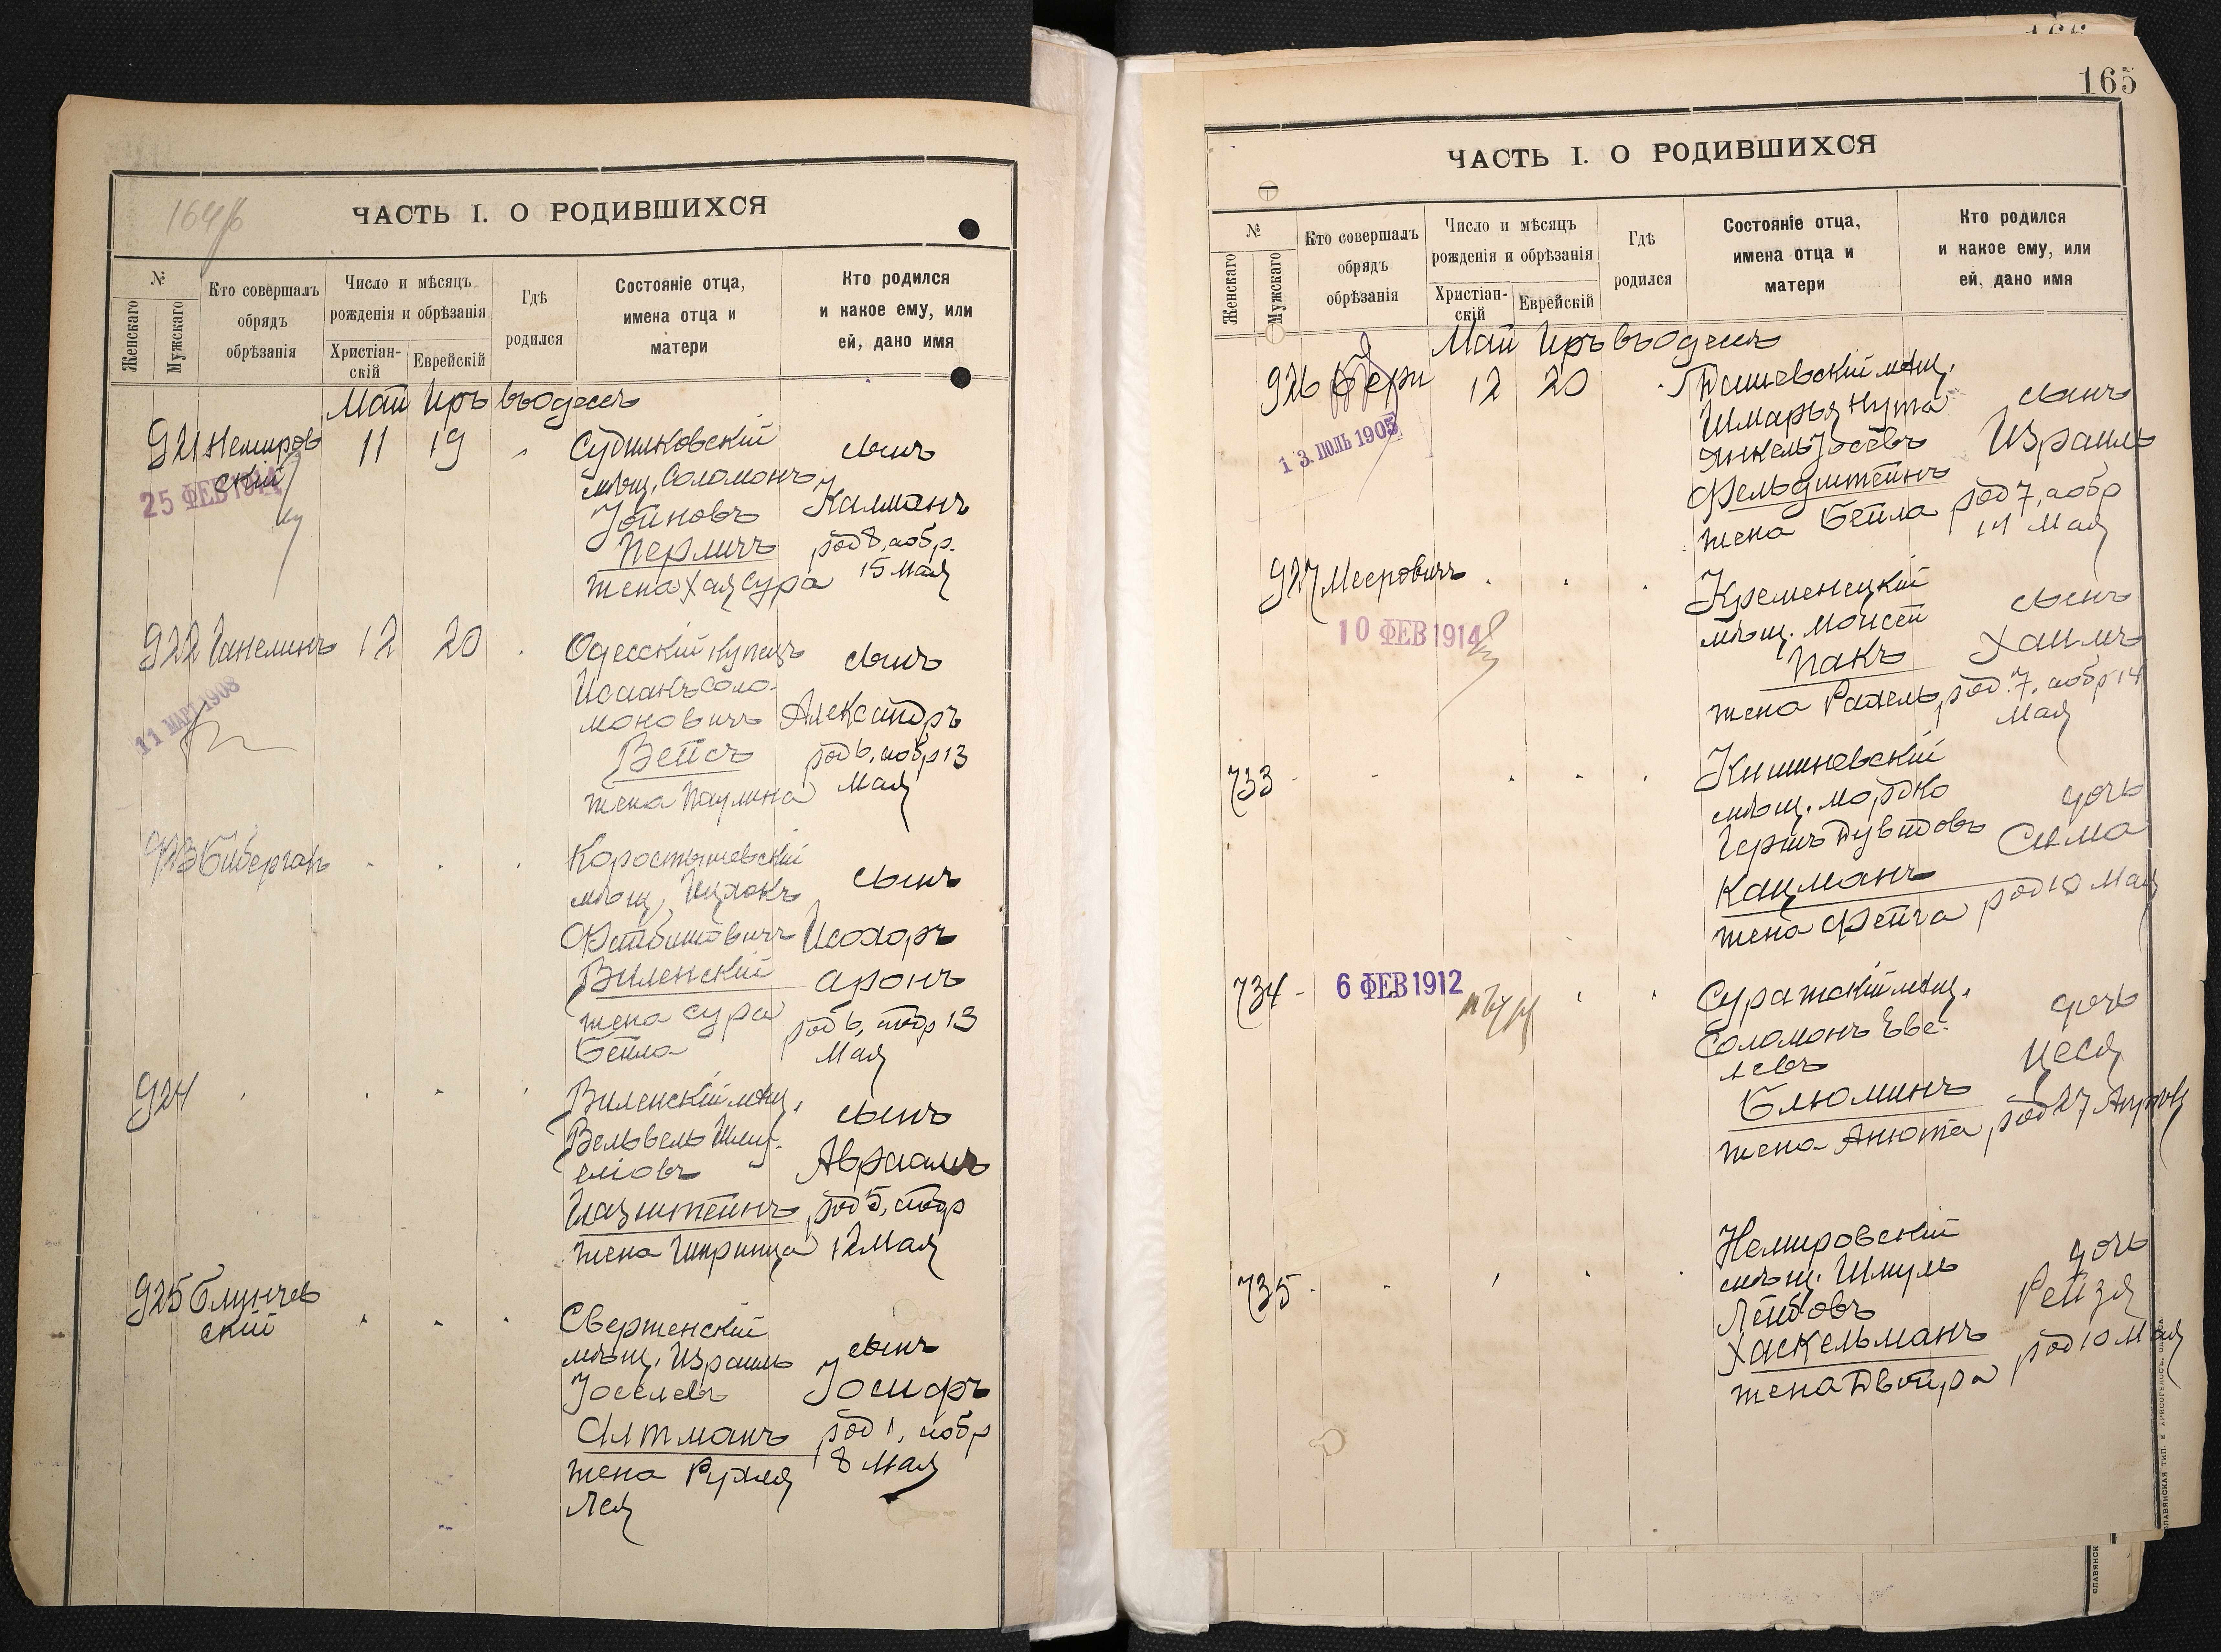 164б
ЧАСТЬ I. О РОДИВШИХСЯ
№
Женскаго
Мужскаго
Кто совершалъ
обрядъ
обрѣзанія
Число и мѣсяцъ
рожденія и обрѣзанія
Христіан-
скій
Еврейскій
Гдѣ
родился
Состояніе отца,
имена отца и
матери
Кто родился
и какое ему, или
ей, дано имя
Май Иръ въ Одессѣ
921 Немиров
скій
25 ФЕВ 1914
11 19
Судилковскій
мѣщ. Соломонъ
Іойновъ
Перличъ
жена Хая Сура
сынъ
Калманъ
род 8, а обр.
15 Мая
922 Ганелинъ 12 20
11 МАРТ 1908
Одесскій купецъ
Исаакъ Соло-
моновичъ
Вейсъ
жена Паулина
сынъ
Александръ
род 6, а обр 13
Мая
923 Биберган
Коростышевскій
мѣщ. Ицхокъ
Файбишовичъ
Виленскій
жена Сура
Бейла
сынъ
Исохоръ
Аронъ
род 6, а обр 13
Мая
924
Виленскій мѣщ.
Вельвель Шму-
еліовъ
Глазштейнъ
жена Шпринца
сынъ
Авраамъ
род 5, а обр
12 Мая
925 Блинчев
скій
Сверженскій
мѣщ. Израиль
Іоселевъ
Алтманъ
жена Рухля
Лея
сынъ
Іосифъ
род 1, а обр
8 Мая
165
ЧАСТЬ I. О РОДИВШИХСЯ
№
Женскаго
Мужскаго
Кто совершалъ
обрядъ
обрѣзанія
Число и мѣсяцъ
рожденія и обрѣзанія
Христіан-
скій
Еврейскій
Гдѣ
родился
Состояніе отца,
имена отца и
матери
Кто родился
и какое ему, или
ей, дано имя
Май Иръ въ Одессѣ
926 12 20
13 ІЮЛЬ 1905
мѣщ.
Шмарья Нута
Янкель Іосевъ
Фельдштейнъ
жена Бейла
сынъ
Израиль
род 7, а обр
14 Мая
927 Мееровичъ
10 ФЕВ 1914
Кременецкій
мѣщ. Мойсей
Пакъ
жена Рахель
сынъ
Хаимъ
род. 7, а обр 14
Мая
733
Кишиневскій
мѣщ. Мордко
Гершъ Дувидовъ
Кацманъ
жена Фейга
дочь
Сима
род 10 Мая
734
6 ФЕВ 1912
Суражскій мѣщ.
Соломонъ Еве-
левъ
Блюминъ
жена Анюта
дочь
Цеся
род 27 Апрѣля
735
Немировскій
мѣщ. Шмуль
Лейбовъ
Хаскельманъ
жена Двойра
дочь
Рейзя
род 10 Мая